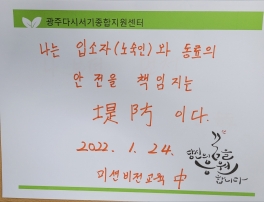 광주다시서기종합지원센터
나는 입소자(노숙인)와 동료의
안전을 책임지는
堤防 이다.
2022. 1. 24.
미션비전교육 中
당신의 꿈을
응원
합니다